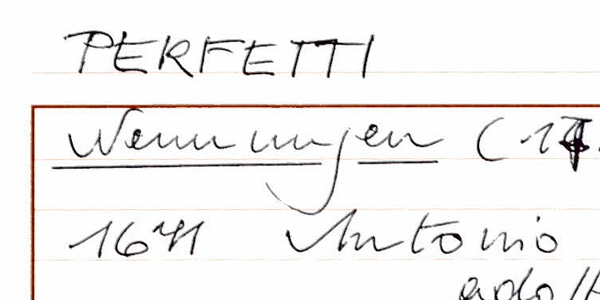 PERFETTI
Wennungen (17.
1641 Antonio